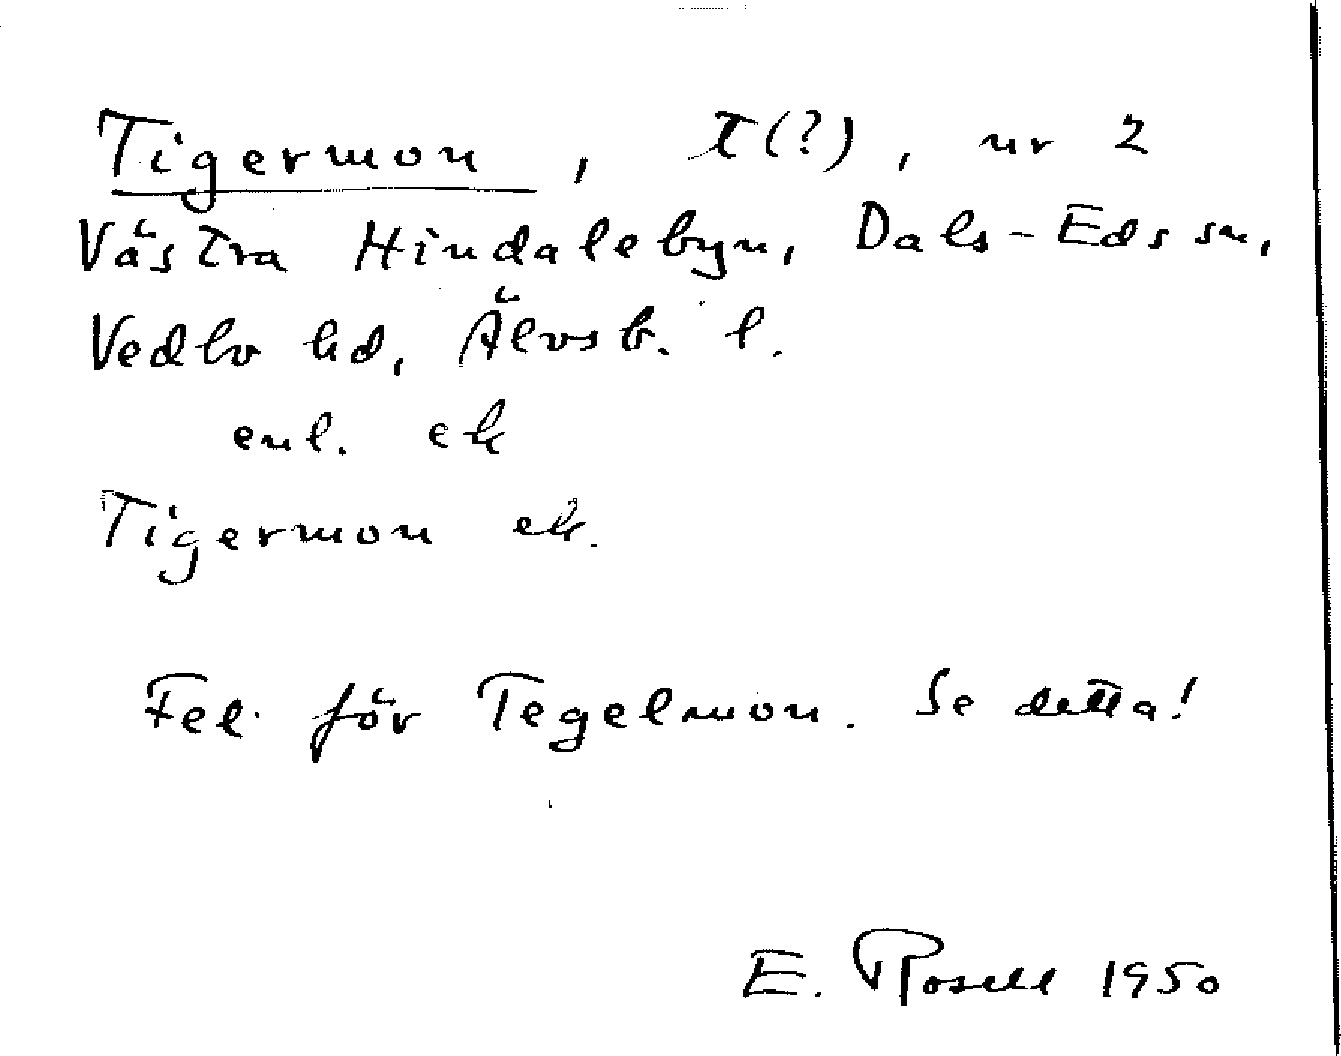 Tigermon, T(?), nr 2
Västra Hindalebyn, Dals-Eds sn,
Vedbo hd, Älvsb. l.
enl. ek
Tigermon ek.
Fel för Tegelmon. Se detta!
E. Rosell 1950